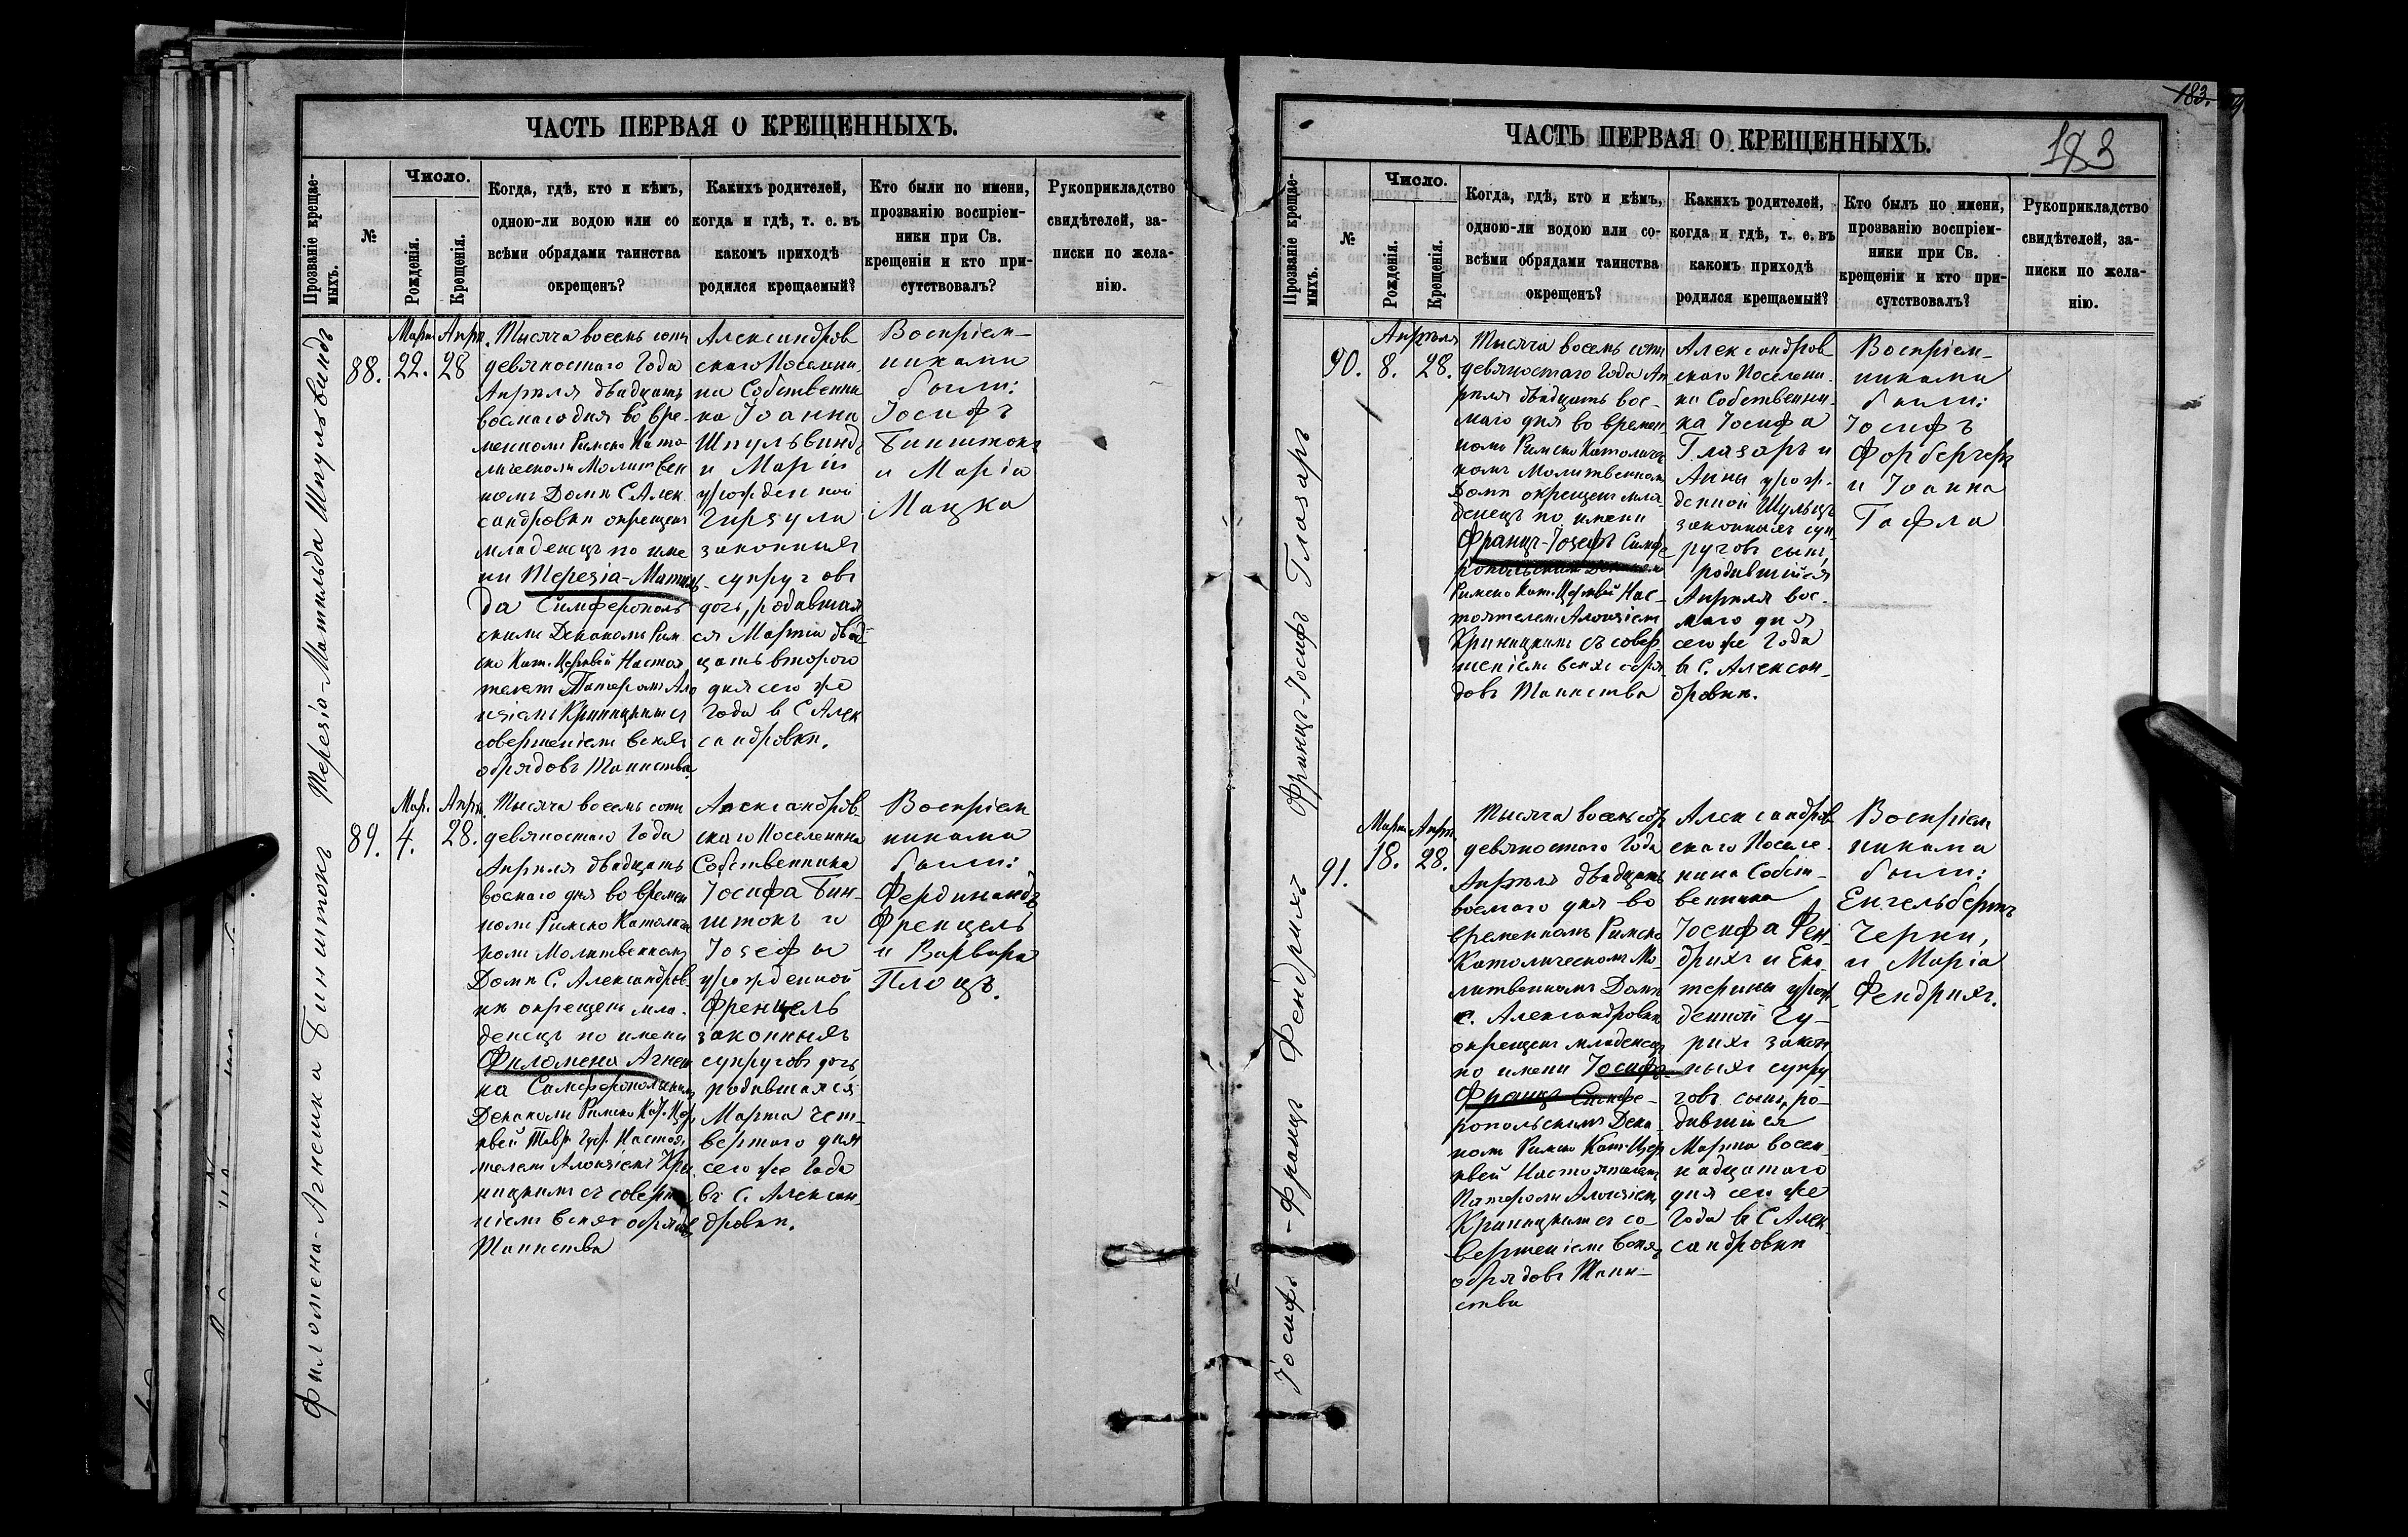 ЧАСТЬ ПЕРВАЯ О КРЕЩЕННЫХЪ.
Прозваніе крещае-
мыхъ.
№
Число.
Рожденія.
Крещенія.
Когда, гдѣ, кто и кѣмъ,
одною-ли водою или со
всѣми обрядами таинства
окрещенъ?
Какихъ родителей,
когда и гдѣ, т. е. въ
какомъ приходѣ
родился крещаемый?
Кто были по имени,
прозванію воспріем-
ники при Св.
крещеніи и кто при-
сутствовалъ?
Рукоприкладство
свидѣтелей, за-
писки по жела-
нію.
Терезія-Матильда Шпульвиндъ
88.
Март. 22.
Апр. 28
Тысяча восемь сотъ
девяностаго Года
Апрѣля двадцать
восмаго дня во вре-
менномъ Римско Като-
лическомъ Молитвен
номъ Домѣ С. Алек
сандровки окрещенъ
младенецъ по име
ни Терезія-Матиль
да Симферополь
скимъ Деканомъ Рим
ско Кат. Церквей Настоя
телемъ Патеромъ Ало
изіемъ Криницкимъ съ
совершеніемъ всѣхъ
обрядовъ Таинства
Александров
скаго Поселяни
на Собственни
ка Іоанна
Шпульвиндъ
и Маріи
урожденной
Гирзула
законныхъ
супруговъ
дочь, родившая
ся Марта двад
цать второго
дня сего же
Года въ С Алек
сандровкѣ.
Воспріем-
никами
были:
Іосифъ
Бинштокъ
и Марія
Мацка
Филомена-Агнешка Бинштокъ
89.
Мар. 4.
Апр. 28.
Тысяча восемь сотъ
девяностаго Года
Апрѣля двадцать
восмаго дня во времен
номъ Римско Католиче
комъ Молитвенномъ
Домѣ С. Александров
кѣ окрещенъ мла-
денецъ по имени
Филомена Агнеш
ка Симферопольскимъ
Деканомъ Римско Кат. Цер
квей Тавр. Губ. Настоя
телемъ Алоизіемъ Кри
ницкимъ съ соверше
ніемъ всѣхъ обрядовъ
Таинства
Александров
скаго Поселянина
Собственника
Іосифа Бин-
штокъ и
Іозефы
урожденной
Френцель
законныхъ
супруговъ дочь,
родившаяся
Марта чет-
вертаго дня
сего же Года
въ С. Алексан
дровкѣ.
Воспріем
никами
были:
Фердинандъ
Френцель
и Варвара
Плоцъ.
183.
183
ЧАСТЬ ПЕРВАЯ О КРЕЩЕННЫХЪ.
Прозваніе крещае-
мыхъ.
№
Число.
Рожденія.
Крещенія.
Когда, гдѣ, кто и кѣмъ,
одною-ли водою или со-
всѣми обрядами таинства
окрещенъ?
Какихъ родителей,
когда и гдѣ, т. е. въ
какомъ приходѣ
родился крещаемый?
Кто былъ по имени,
прозванію воспріем-
ники при Св.
крещеніи и кто при-
сутствовалъ?
Рукоприкладство
свидѣтелей, за-
писки по жела-
нію.
Францъ-Іосифъ Глазаръ
90.
Апрѣля
8. 28.
Тысяча восемь сотъ
девяностаго Года Ап
рѣля двадцать вос-
маго дня во времен
номъ Римско Католиче
комъ Молитвенномъ
Домѣ окрещенъ мла
денецъ по имени
Францъ-Іозефъ Симфе
ропольскимъ Деканомъ
Римско Кат. Церквей Нас-
тоятелемъ Алоизіемъ
Криницкимъ съ совер
шеніемъ всѣхъ обря
довъ Таинства
Александров
скаго Поселяни
на Собственни-
ка Іосифа
Глазаръ и
Анны урож-
денной Шульцъ
законныхъ суп
руговъ сынъ,
родившійся
Апрѣля вос-
маго дня
сего же Года
въ С. Алексан-
дровкѣ.
Воспріем-
никами
были:
Іосифъ
Форбергеръ
и Іоанна
Гафла
Іосифъ-Францъ Фендрихъ
91.
Март. 18.
Апр. 28.
Тысяча восемь сотъ
девяностаго Года
Апрѣля двадцать
восмаго дня во
временномъ Римско
Католическомъ Мо-
литвенномъ Домѣ
с. Александровки
окрещенъ младенецъ
по имени Іосифъ
Францъ Симфе-
ропольскимъ Дека
номъ Римско Кат. Цер
квей Настоятелемъ
Патеромъ Алоизіемъ
Криницкимъ съ со-
вершеніемъ всѣхъ
обрядовъ Таин-
ства
Александров
скаго Поселя-
нина Собст-
венника
Іосифа Фен-
дрихъ и Ека-
терины урож
денной Гу-
рихъ закон
ныхъ супру
говъ сынъ, ро-
дившійся
Марта восем
надцатаго
дня сего же
Года въ С Алек
сандровкѣ
Воспріем
никами
были:
Енгельбертъ
Черни,
и Марія
Фендрихъ.